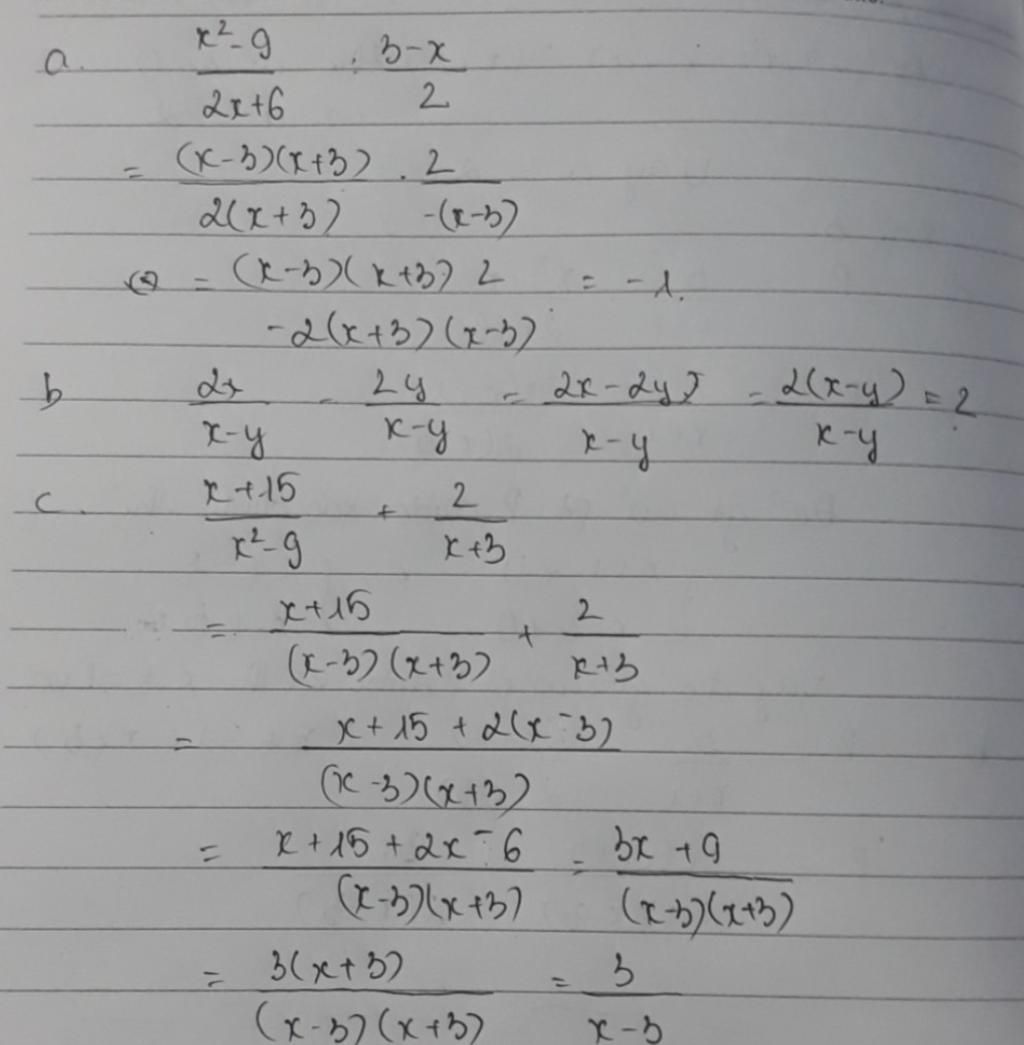 a. \frac{x^2-9}{2x+6} : \frac{3-x}{2}
= \frac{(x-3)(x+3)}{2(x+3)} . \frac{2}{-(x-3)}
= \frac{(x-3)(x+3) 2}{-2(x+3)(x-3)} = -1.
b \frac{2x}{x-y} - \frac{2y}{x-y} = \frac{2x-2y}{x-y} = \frac{2(x-y)}{x-y} = 2
c. \frac{x+15}{x^2-9} + \frac{2}{x+3}
= \frac{x+15}{(x-3)(x+3)} + \frac{2}{x+3}
= \frac{x+15+2(x-3)}{(x-3)(x+3)}
= \frac{x+15+2x-6}{(x-3)(x+3)} = \frac{3x+9}{(x-3)(x+3)}
= \frac{3(x+3)}{(x-3)(x+3)} = \frac{3}{x-3}